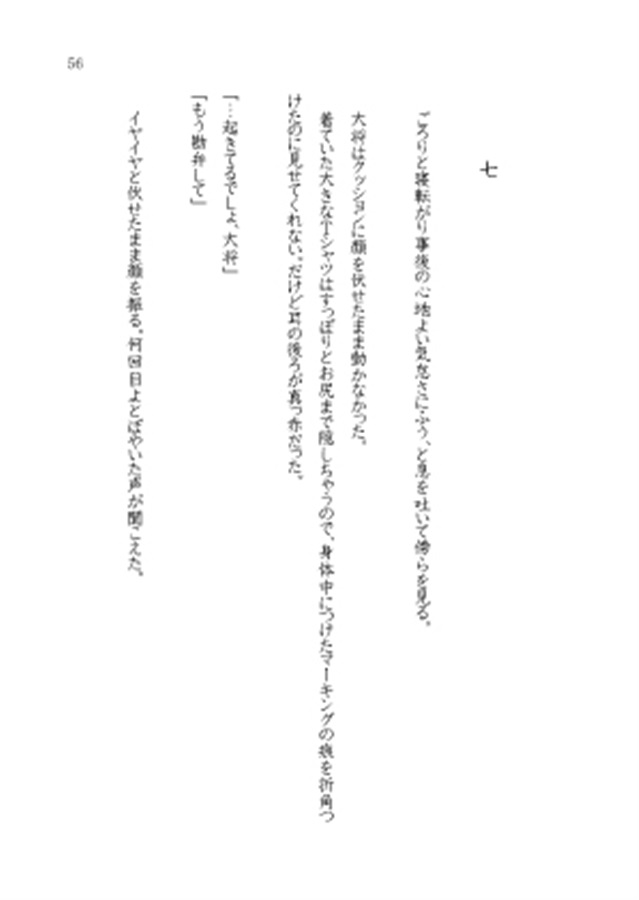 56
七
ごろりと寝転がり事後の心地よい気怠さにふう、と息を吐いて傍らを見る。
大将はクッションに顔を伏せたまま動かなかった。
着ていた大きなTシャツはすっぽりとお尻まで隠しちゃうので、身体中につけたマーキングの痕を折角つ
けたのに見せてくれない。だけど耳の後ろが真っ赤だった。
「…起きてるでしょ、大将」
「もう勘弁して」
イヤイヤと伏せたまま顔を振る。何回目よとぼやいた声が聞こえた。